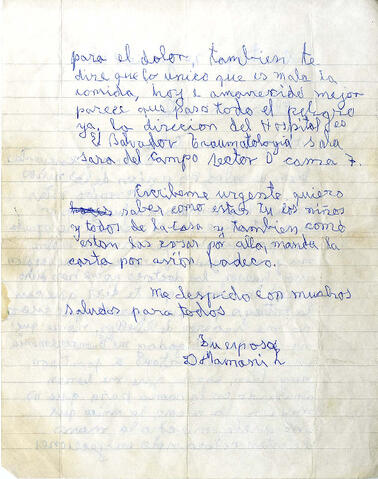 para el dolor, tambien te
dire que lo unico que es mala la
comida, hoy e amanesido mejor
parece que paso todo el peligro
ya, la direcion del Hospital es
El Salvador Traumatologia sala
sara del Campo sector D cama 7.
Escribeme urgente quiero
saber como estas tu los niños
y todos de la casa y tambien como
estan las cosas por alla, manda la
carta por avión Ladeco.
Me despido con muchos
saludos para todos
Su esposo
D Mamani